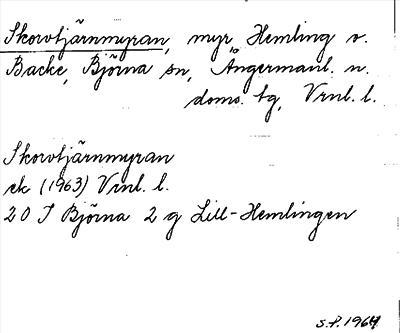 Skorvtjärnmyran, myr, Hemling o.
Backe, Björna sn, Ångermanl. n.
doms. tg, Vrnl. l.
Skorvtjärnmyran
ek (1963) Vrnl. l.
20 I Björna 2 g Lill-Hemlingen
s.f. 1964